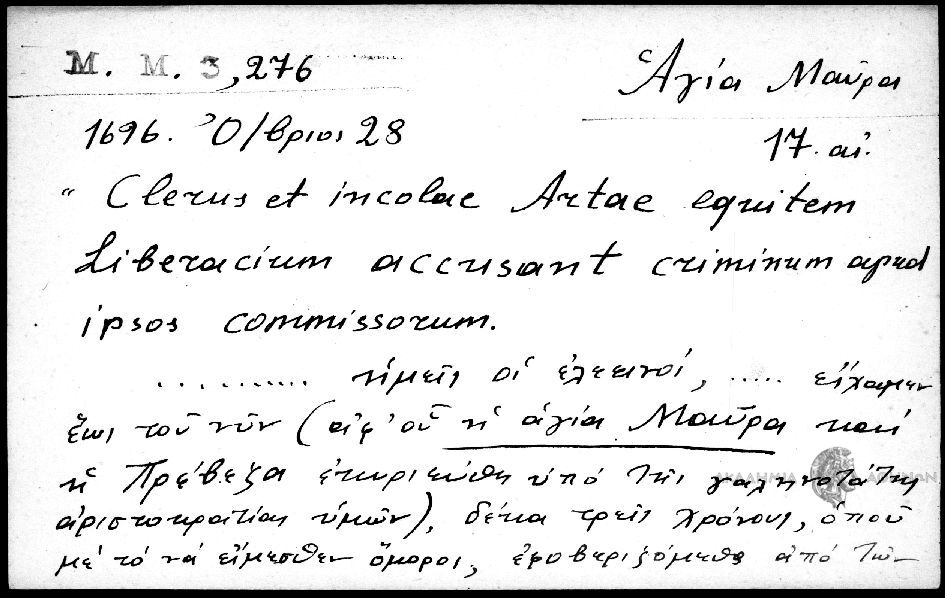 M. M. 3,276
Ἁγία Μαῦρα
1696. Ὀ/βριοι 28
17. αἰ.
" Clerus et incolae Artae equitem
Liberacium accusant criminum apud
ipsos commissorum.
.......... ἡμεῖς οἱ ἐλεεινοί, ..... εἴχαμεν
ἕως τοῦ νῦν (ἀφ' οὗ ἡ ἁγία Μαῦρα καὶ
ἡ Πρέβεζα ἐκυριεύθη ὑπὸ τῆς γαληνοτάτης
ἀριστοκρατίας ὑμῶν), δέκα τρεῖς χρόνους, ὁποῦ
μὲ τὸ νὰ εἴμεσθεν ὅμοροι, ἐφοβεριζόμεθα ἀπὸ τῶν
ΑΚΑΔΗΜΙΑ ΑΘΗΝΩΝ